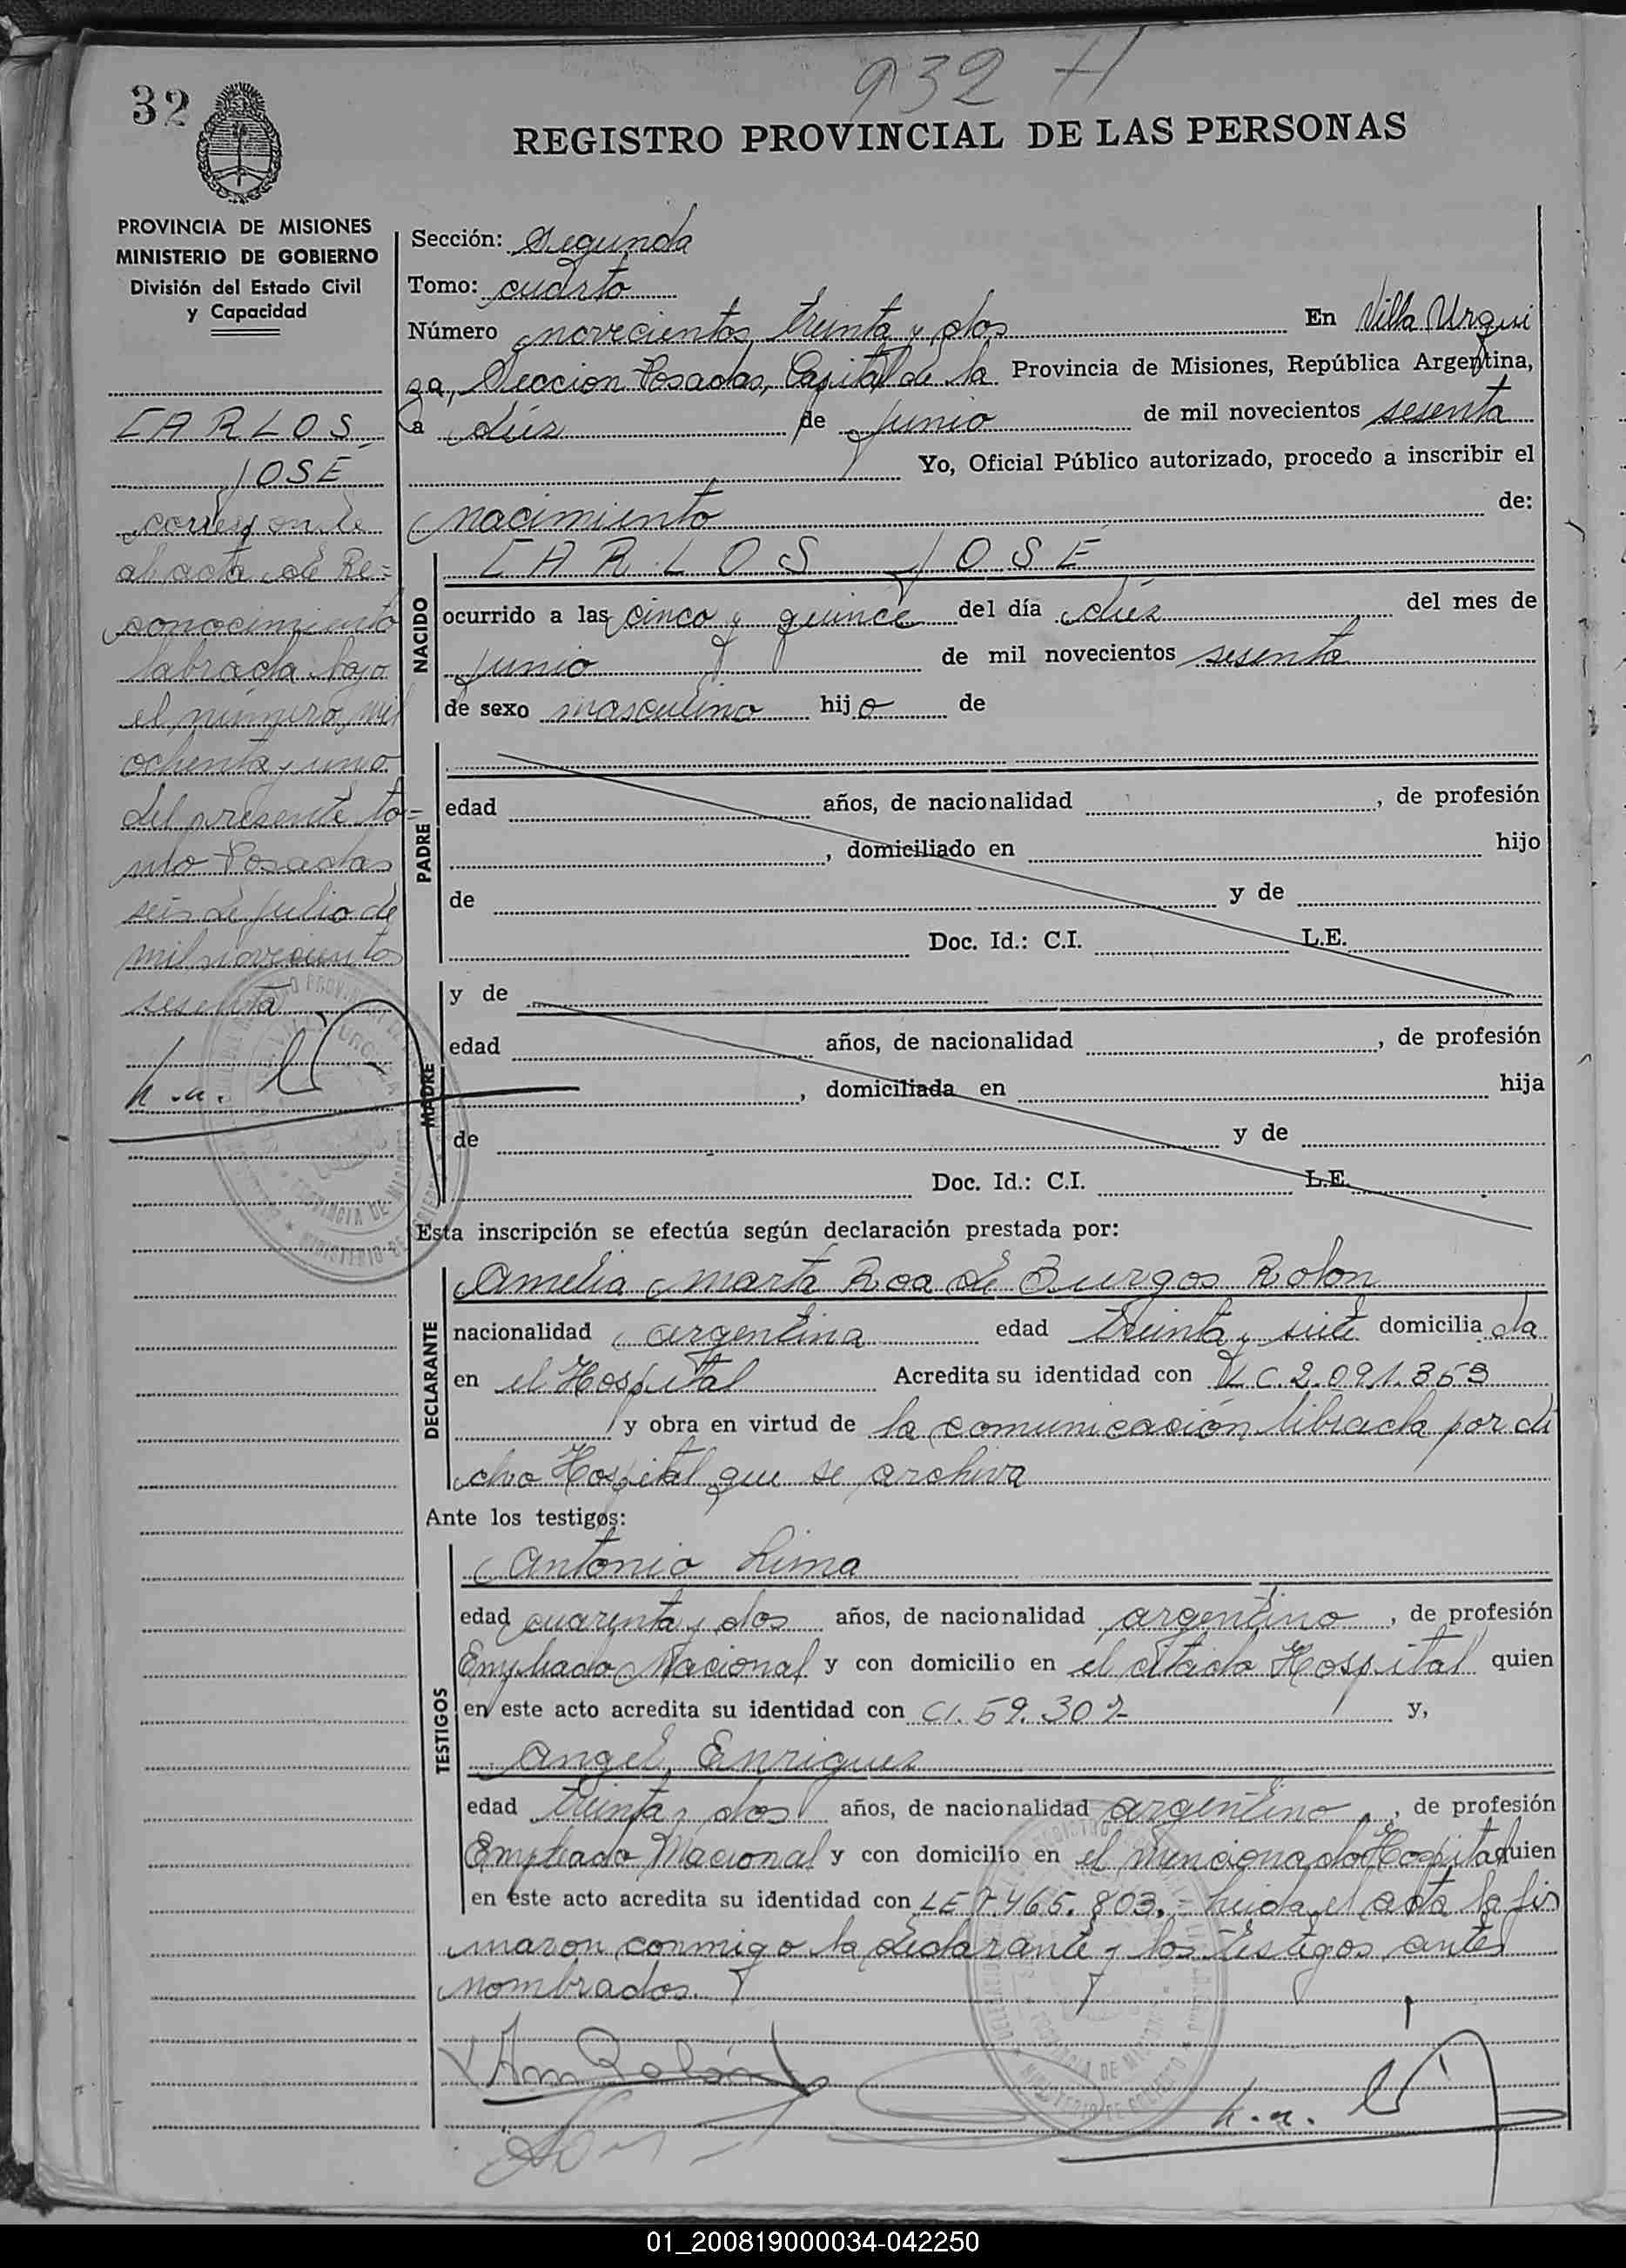 932 H
32
REGISTRO PROVINCIAL DE LAS PERSONAS
PROVINCIA DE MISIONES
MINISTERIO DE GOBIERNO
División del Estado Civil
y Capacidad
CARLOS
JOSÉ
corresponde
al acta de Re=
conocimiento
labrada bajo
el número mil
ochenta y uno
del presente to=
mo Posadas
seis de julio de
mil novecientos
sesenta
Sección: Segunda
Tomo: cuarto
Número novecientos treinta y dos En Villa Urqui
za, Seccion Posadas, Capital de la Provincia de Misiones, República Argentina,
a diez de junio de mil novecientos sesenta
Yo, Oficial Público autorizado, procedo a inscribir el
nacimiento de:
NACIDO
CARLOS JOSÉ
ocurrido a las cinco y quince del día diez del mes de
junio de mil novecientos sesenta
de sexo masculino hijo de
PADRE
edad años, de nacionalidad , de profesión
, domiciliado en hijo
de y de
Doc. Id.: C.I. L.E.
MADRE
y de
edad años, de nacionalidad , de profesión
, domiciliada en hija
de y de
Doc. Id.: C.I. L.E.
Esta inscripción se efectúa según declaración prestada por:
DECLARANTE
Amelia Marta Roa de Burgos Rolon
nacionalidad argentina edad treinta y siete domicilia da
en el Hospital Acredita su identidad con LC 2.091.363
y obra en virtud de la comunicación librada por di
cho Hospital que se archiva
Ante los testigos:
TESTIGOS
Antonio Lima
edad cuarenta y dos años, de nacionalidad argentino , de profesión
Empleado Nacional y con domicilio en el citado Hospital quien
en este acto acredita su identidad con CI. 59.302 y,
Angel Enriquez
edad treinta y dos años, de nacionalidad argentino , de profesión
Empleado Nacional y con domicilio en el mencionado Hospital quien
en este acto acredita su identidad con LE 7.465.803.= Leida el acta la fir
maron conmigo la declarante y los testigos antes
nombrados.
01_200819000034-042250